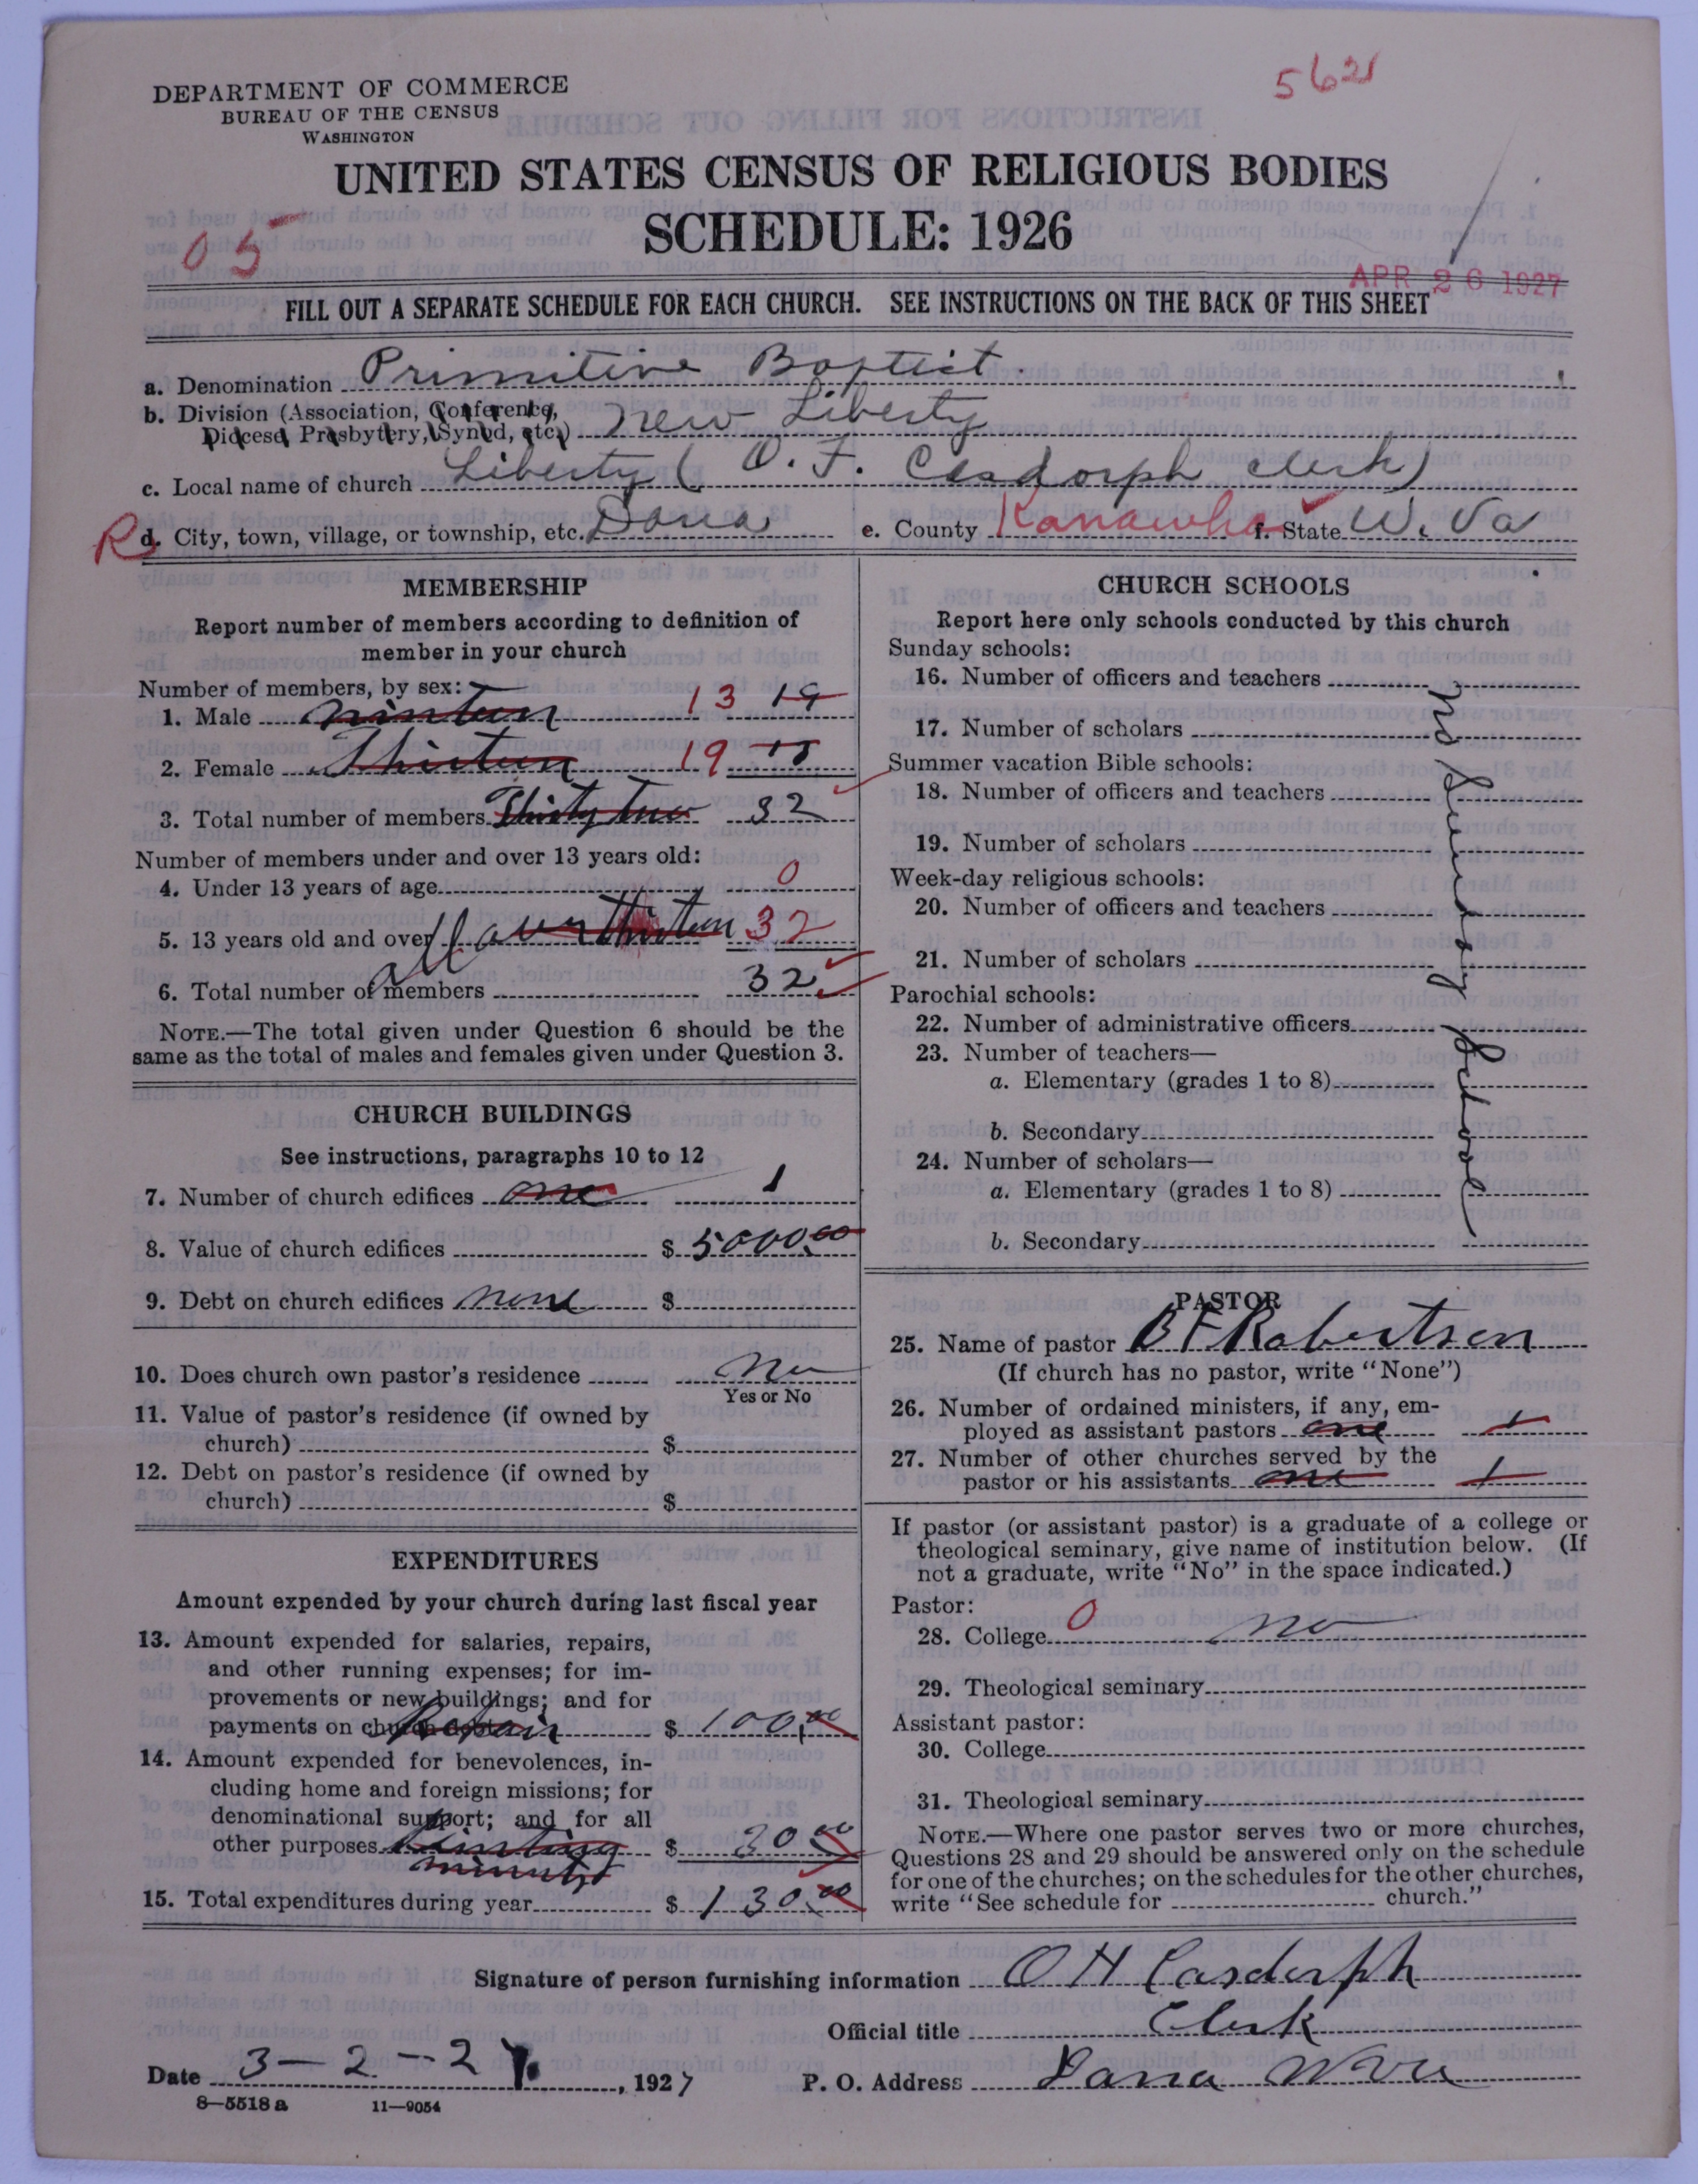 5621
DEPARTMENT OF COMMERCE
BUREAU OF THE CENSUS
WASHINGTON
UNITED STATES CENSUS OF RELIGIOUS BODIES
SCHEDULE: 1926
05
APR 26 1927
FILL OUT A SEPARATE SCHEDULE FOR EACH CHURCH. SEE INSTRUCTIONS ON THE BACK OF THIS SHEET
a. Denomination Primitive Baptist
b. Division (Association, Conference,
Diocese, Presbytery, Synod, etc.) New Liberty
c. Local name of church Liberty (O. F. Casdorph clerk)
R d. City, town, village, or township, etc. Dana e. County Kanawha f. State W. Va
MEMBERSHIP
Report number of members according to definition of
member in your church
Number of members, by sex:
1. Male ninteen 13 19
2. Female Thirteen 19
3. Total number of members Thirty two 32
Number of members under and over 13 years old:
4. Under 13 years of age 0
5. 13 years old and over all over thirteen 32
6. Total number of members 32
NOTE.—The total given under Question 6 should be the
same as the total of males and females given under Question 3.
CHURCH BUILDINGS
See instructions, paragraphs 10 to 12
7. Number of church edifices one 1
8. Value of church edifices $ 5000.00
9. Debt on church edifices none $
10. Does church own pastor's residence no
Yes or No
11. Value of pastor's residence (if owned by
church) $
12. Debt on pastor's residence (if owned by
church) $
EXPENDITURES
Amount expended by your church during last fiscal year
13. Amount expended for salaries, repairs,
and other running expenses; for im-
provements or new buildings; and for
payments on church debt Repair $ 100.00
14. Amount expended for benevolences, in-
cluding home and foreign missions; for
denominational support; and for all
other purposes Printing $ 30.00
minutes
15. Total expenditures during year $ 130.00
CHURCH SCHOOLS
Report here only schools conducted by this church
Sunday schools:
16. Number of officers and teachers
17. Number of scholars
Summer vacation Bible schools:
18. Number of officers and teachers
19. Number of scholars
Week-day religious schools:
20. Number of officers and teachers
21. Number of scholars
Parochial schools:
22. Number of administrative officers
23. Number of teachers—
a. Elementary (grades 1 to 8)
b. Secondary
24. Number of scholars—
a. Elementary (grades 1 to 8)
b. Secondary
no Sunday School
PASTOR
25. Name of pastor B F Robertson
(If church has no pastor, write "None")
26. Number of ordained ministers, if any, em-
ployed as assistant pastors one 1
27. Number of other churches served by the
pastor or his assistants one 1
If pastor (or assistant pastor) is a graduate of a college or
theological seminary, give name of institution below. (If
not a graduate, write "No" in the space indicated.)
Pastor:
28. College 0 no
29. Theological seminary
Assistant pastor:
30. College
31. Theological seminary
NOTE.—Where one pastor serves two or more churches,
Questions 28 and 29 should be answered only on the schedule
for one of the churches; on the schedules for the other churches,
write "See schedule for church."
Signature of person furnishing information O H Casdorph
Official title Clerk
Date 3-2-27, 1927 P. O. Address Dana W Va
8—5518 a 11—9054